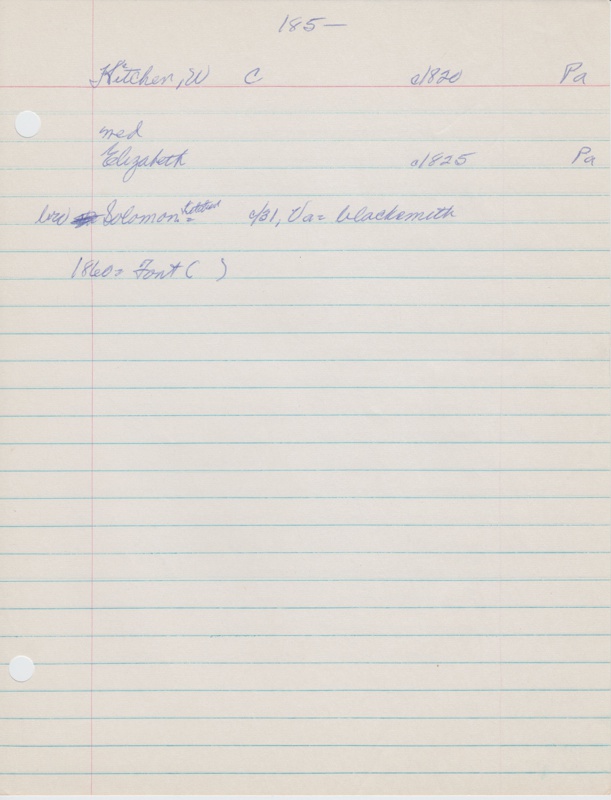 185—
Kitchen, W C c/1820 Pa
med
Elizabeth c/1825 Pa
Solomon = c/31, Va = blacksmith
1860 = Font ( )